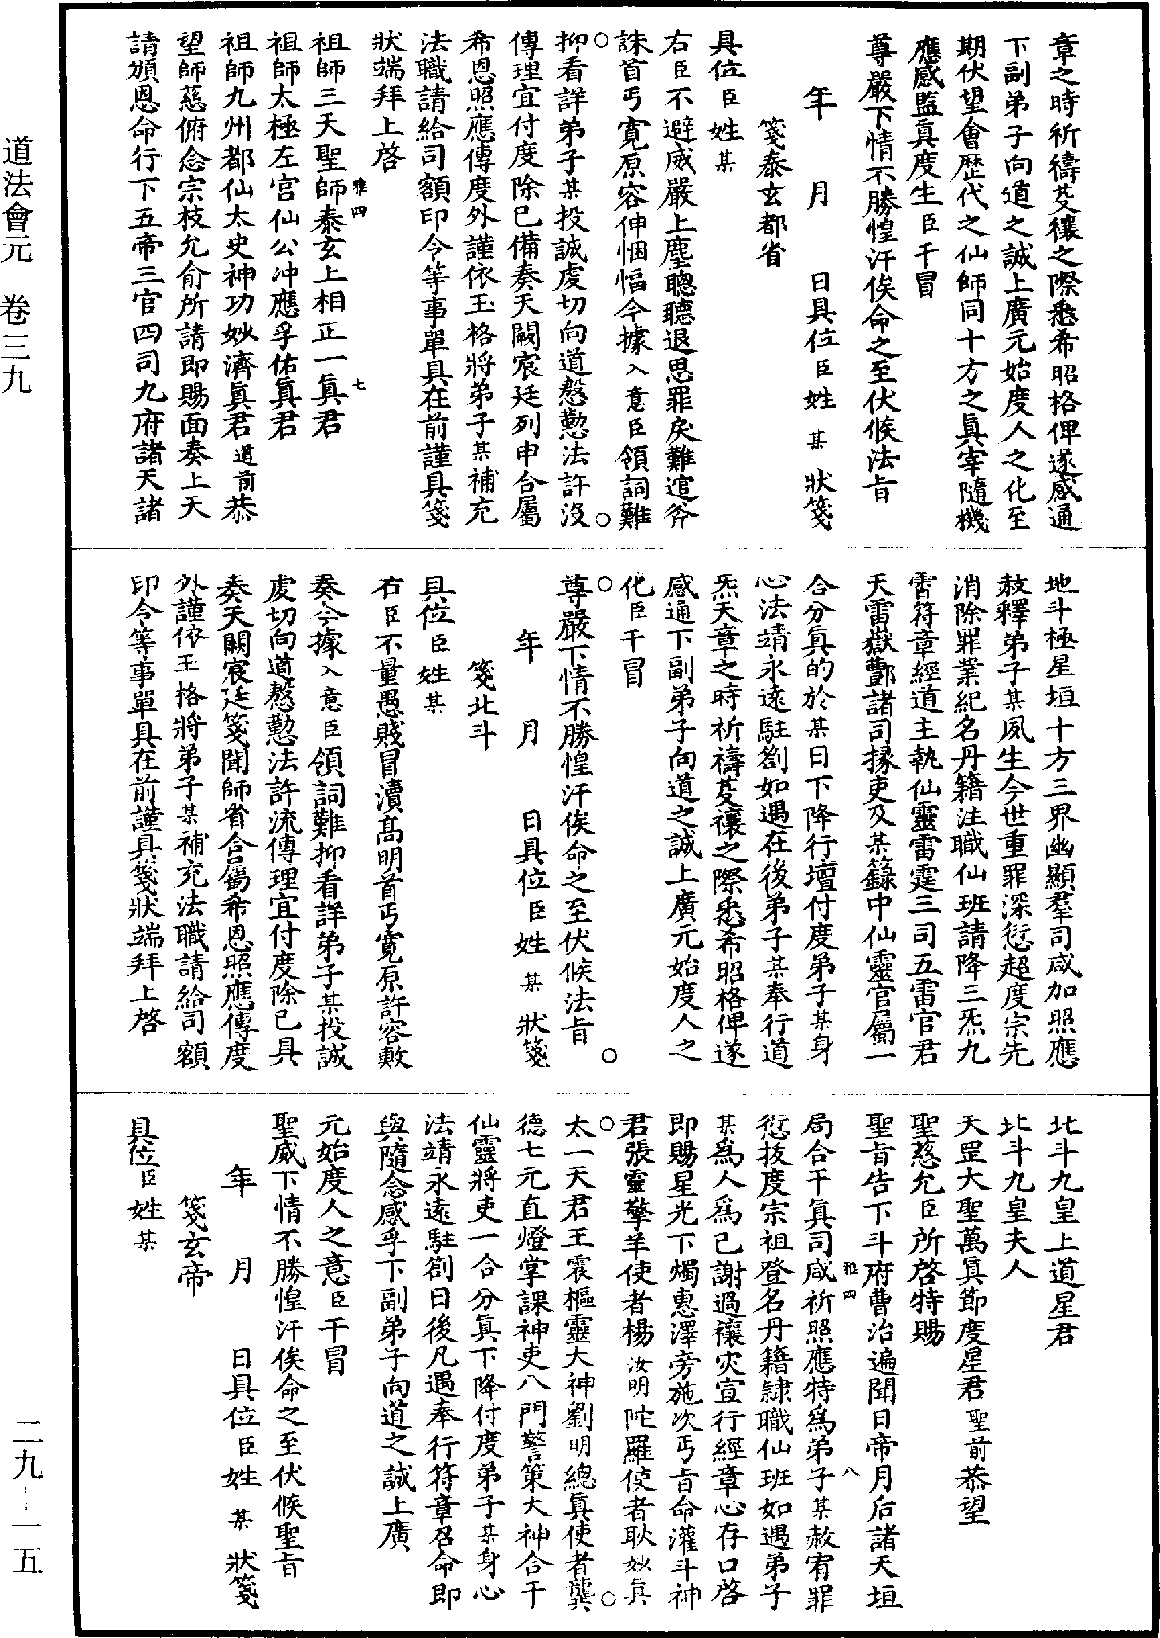 章之時祈禱芟禳之際悉希昭格俾遂感通
下副弟子向道之誠上廣元始度人之化至
期伏望會歷代之仙師同十方之眞宰隨機
應感監眞度生臣干冒
尊嚴下情不勝惶汗俟命之至伏候法旨
年 月 日具位臣姓某狀箋
箋泰玄都省
具位臣姓某
右臣不避威嚴上塵聰聽退思罪戾難逭斧
誅首丐寬原容伸悃愊今據入意臣領詞難
抑看詳弟子某投誠虔切向道慇懃法許沒
傳理宜付度除已備奏天闕宸廷列申合屬
希恩照應傳度外謹依玉格將弟子某補充
法職請給司額印令等事單具在前謹具箋
狀端拜上啓
雅四 七
祖師三天聖師泰玄上相正一眞君
祖師太極左宮仙公冲應孚佑眞君
祖師九州都仙太史神功妙濟眞君道前恭
望師慈俯念宗枝允俞所請即賜面奏上天
請頒恩命行下五帝三官四司九府諸天諸
地斗極星垣十方三界幽顯羣司咸加照應
赦釋弟子某夙生今世重罪深愆超度宗先
消除罪業紀名丹籍注職仙班請降三炁九
霄符章經道主執仙靈雷霆三司五雷官君
天雷嶽酆諸司掾吏及某籙中仙靈官屬一
合分眞的於某日下降行壇付度弟子某身
心法靖永遠駐劄如遇在後弟子某奉行道
炁天章之時祈禱芟禳之際悉希昭格俾遂
感通下副弟子向道之誠上廣元始度人之
化臣干冒
尊嚴下情不勝惶汗俟命之至伏候法旨
年 月 日具位臣姓某狀箋
箋北斗
具位臣姓某
右臣不量愚賤冒瀆高明首丐寬原許容敷
奏今據入意臣領詞難抑看詳弟子某投誠
虔切向道慇懃法許流傳理宜付度除已具
奏天闕宸廷箋聞師省合屬希恩照應傳度
外謹依玉格將弟子某補充法職請給司額
印令等事單具在前謹具箋狀端拜上啓
北斗九皇上道星君
北斗九皇夫人
天罡大聖萬眞節度星君聖前恭望
聖慈允臣所啓特賜
聖旨告下斗府曹治遍聞日帝月后諸天垣
雅四 八
局合干眞司咸祈照應特爲弟子某赦宥罪
愆拔度宗祖登名丹籍隷職仙班如遇弟子
某爲人爲己謝過禳灾宣行經章心存口啓
即賜星光下燭惠澤旁施次丐旨命灌斗神
君張靈擎羊使者楊汝明陀羅使者耿妙眞
太一天君王震樞靈大神劉明總眞使者龔
德七元直燈掌課神吏八門警策大神合干
仙靈將吏一合分眞下降付度弟子某身心
法靖永遠駐劄日後凡遇奉行符章召命即
與隨念感孚下副弟子向道之誠上廣
元始度人之意臣干冒
聖威下情不勝惶汗俟命之至伏候聖旨
年 月 日具位臣姓某狀箋
箋玄帝
具位臣姓某
道法會元 卷三九
二九–一五